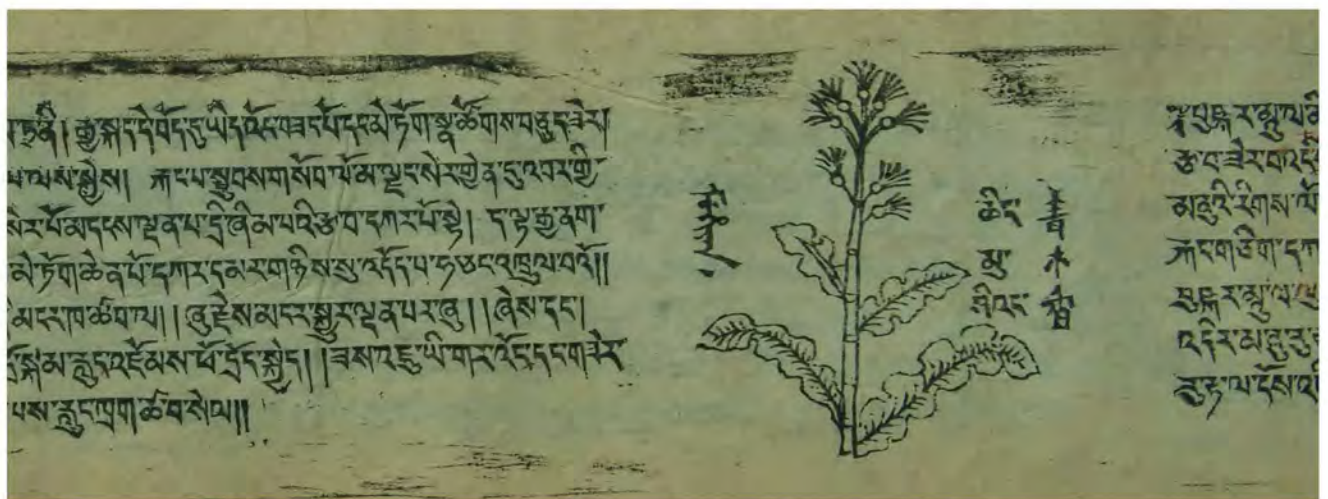 རྒྱ་སྐད་དེ་བོད་དུ་ཡིད་འོང་བཟང་པོ་དང་མེ་ཏོག་སྣ་ཚོགས་བཅུད་ཟེར།
ལས་སྐྱེས། རྐང་པ་སྦུབས་གསོབ་ལོ་མ་ལྗང་སེར་གྱེན་དུ་འབར་གྱི་
སེར་པོ་མདངས་ལྡན་པ་དྲི་ཞིམ་པའི་རྩ་བ་དཀར་པོ་སྟེ། ད་ལྟ་རྒྱ་ནག་
མེ་ཏོག་ཆེན་པོ་དཀར་དམར་གཉིས་སུ་འདོད་པ་ཧ་ཅང་འཁྲུལ་བའོ།།
མངར་ཁ་ཚ་བ་ལ། །ཞུ་རྗེས་མངར་སྐྱུར་ལྡན་པར་ཞུ། །ཞེས་དང་།
སྙོམ་རླུང་འཇོམས་ཕོ་དྲོད་སྐྱེད། །ཟས་འཇུ་ཡི་གར་འོང་དང་གཟེར་
པས་རླུང་ཁྲག་ཚ་བ་སེལ།།
ཆིང་
མུ་
ཤིའང་
青木香
རྩ་བ་ཟེར་བ་འདི
མ་ནུའི་རིགས་ལོ
རྐང་གཅིག་དཀ
འདིར་མ་ནུ་རུ
རུ་རྟ་ལ་དངོས་འ